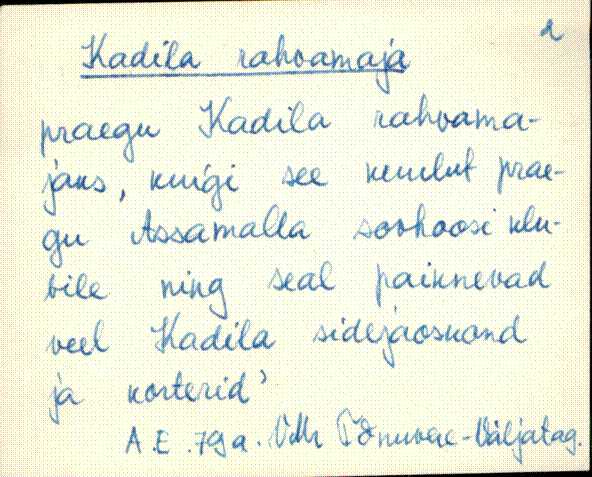 2
Kadila rahvamaja
praegu Kadila rahvama-
jaks, kuigi see kuulut prae-
gu Assamalla sovhoosi klu-
bile ning seal paiknevad
veel Kadila sidejaoskond
ja korterid'
A.E. 79a. VMr Põnuvere-Väljatag.